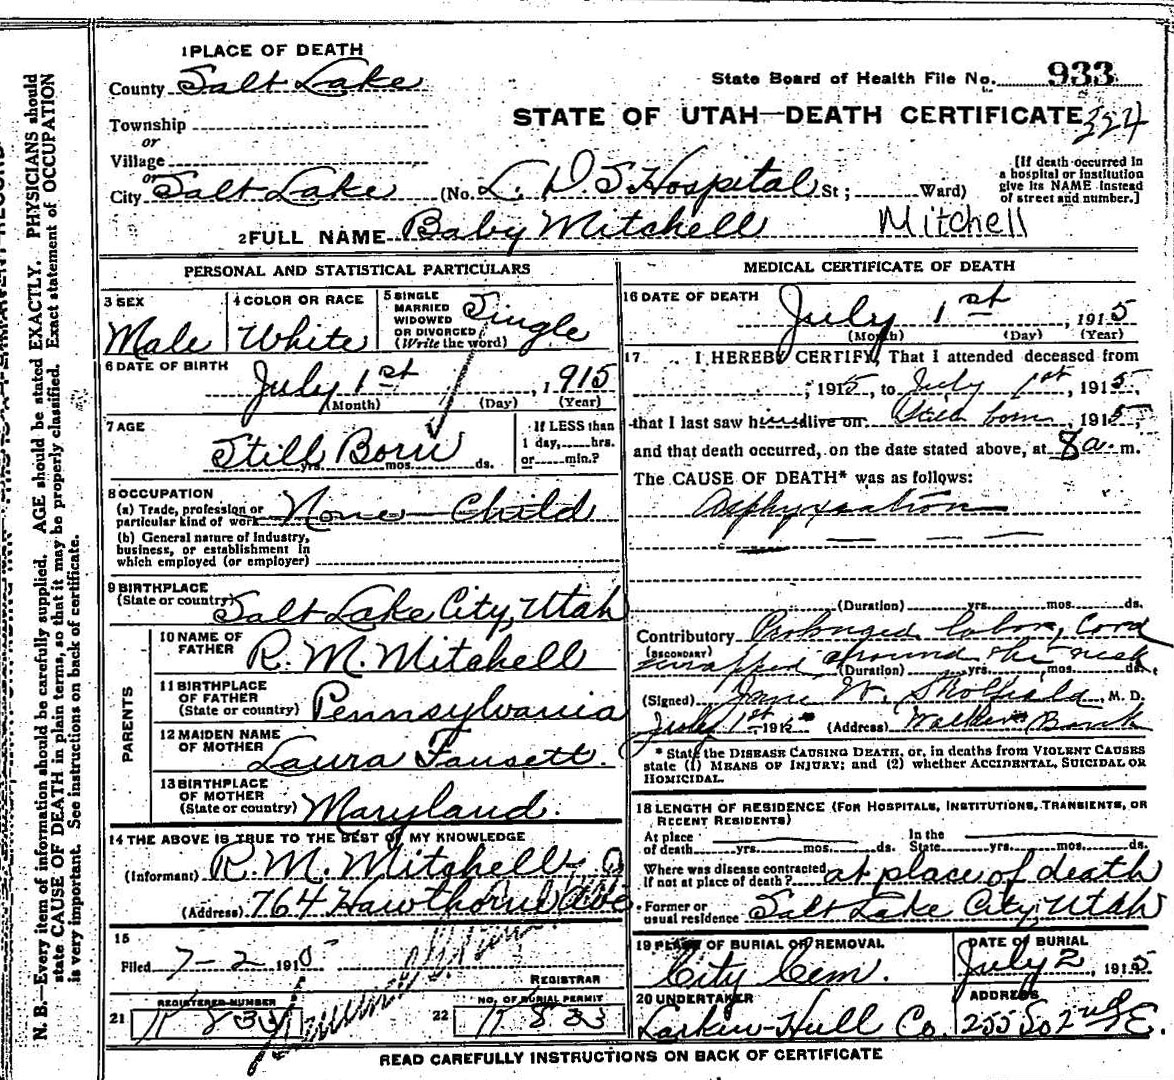 1 PLACE OF DEATH
County Salt Lake
State Board of Health File No. 933
STATE OF UTAH—DEATH CERTIFICATE 324
Township
or
Village
or
City Salt Lake (No. L. D. S Hospital St; Ward)
[If death occurred in a hospital or institution give its NAME instead of street and number.]
2 FULL NAME Baby Mitchell Mitchell
PERSONAL AND STATISTICAL PARTICULARS
3 SEX
Male
4 COLOR OR RACE
White
5 SINGLE MARRIED WIDOWED OR DIVORCED (Write the word)
Single
6 DATE OF BIRTH
July 1st, 1915
(Month) (Day) (Year)
7 AGE
Still Born
yrs. mos. ds.
If LESS than 1 day, hrs. or min.?
8 OCCUPATION
(a) Trade, profession or particular kind of work None - Child
(b) General nature of Industry, business, or establishment in which employed (or employer)
9 BIRTHPLACE
(State or country) Salt Lake City, Utah
PARENTS
10 NAME OF FATHER R. M. Mitchell
11 BIRTHPLACE OF FATHER (State or country) Pennsylvania
12 MAIDEN NAME OF MOTHER Laura Fausett.
13 BIRTHPLACE OF MOTHER (State or country) Maryland.
14 THE ABOVE IS TRUE TO THE BEST OF MY KNOWLEDGE
(Informant) R. M. Mitchell
(Address) 764 Hawthorne Ave
15
Filed 7-2-1915
REGISTRAR
21 REGISTERED NUMBER
22 NO. OF BURIAL PERMIT
MEDICAL CERTIFICATE OF DEATH
16 DATE OF DEATH
July 1st, 1915
(Month) (Day) (Year)
17 I HEREBY CERTIFY, That I attended deceased from
, 1915, to July 1st, 1915,
that I last saw him alive on Still born, 1915,
and that death occurred, on the date stated above, at 8 a. m.
The CAUSE OF DEATH* was as follows:
Asphyxiation
(Duration) yrs. mos. ds.
Contributory Prolonged labor, Cord
(SECONDARY) wrapped around the neck
(Duration) yrs. mos. ds.
(Signed) Jane W. Skolfield M. D.
July 1st 191 (Address) Walker Bank
* State the DISEASE CAUSING DEATH, or, in deaths from VIOLENT CAUSES
state (1) MEANS OF INJURY; and (2) whether ACCIDENTAL, SUICIDAL OR
HOMICIDAL.
18 LENGTH OF RESIDENCE (FOR HOSPITALS, INSTITUTIONS, TRANSIENTS, OR
RECENT RESIDENTS)
At place of death yrs. mos. ds. In the State yrs. mos. ds.
Where was disease contracted if not at place of death? at place of death
Former or usual residence Salt Lake City, Utah
19 PLACE OF BURIAL OR REMOVAL
City Cem.
DATE OF BURIAL
July 2, 1915
20 UNDERTAKER
Larkin-Hull Co.
ADDRESS
255 So 2nd E.
READ CAREFULLY INSTRUCTIONS ON BACK OF CERTIFICATE
N. B.—Every item of information should be carefully supplied. AGE should be stated EXACTLY. PHYSICIANS should
state CAUSE OF DEATH in plain terms, so that it may be properly classified. Exact statement of OCCUPATION
is very important. See instructions on back of certificate.